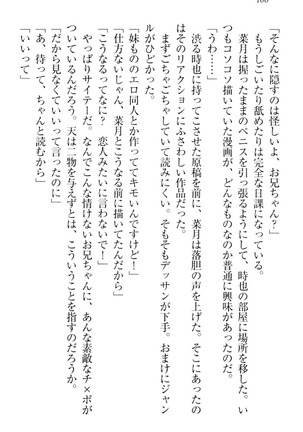 100
「そんなに隠すのは怪しいよ、お兄ちゃん?」
もうしごいたり舐めたりは完全な日課になっている。
菜月は握ったままのペニスを引っ張るようにして、時也の部屋に場所を移した。い
つもコソコソ描いていた漫画が、どんなものなのか普通に興味があったのだ。
渋る時也に持ってこさせた原稿を前に、菜月は落胆の声を上げた。そこにあったの
はそのリアクションにふさわしい作品だった。
「うわ……」
まずごちゃごちゃしていて読みにくい。そもそもデッサンが下手。おまけにジャン
ルがひどかった。
「妹もののエロ同人とか作っててキモいんですけど!」
「仕方ないじゃん、菜月とこうなる前に描いてたんだから」
「こうなるってなに? 恋人みたいに言わないで!」
やっぱりサイテーだ。こんな情けないお兄ちゃんに、あんな素敵なチ×ポが
ついているんだろう。天は二物を与えずとは、こういうことを指すのだろうか。
「だから見なくていいって言ったのに」
「あ、待って、ちゃんと読むから」
「いいって」